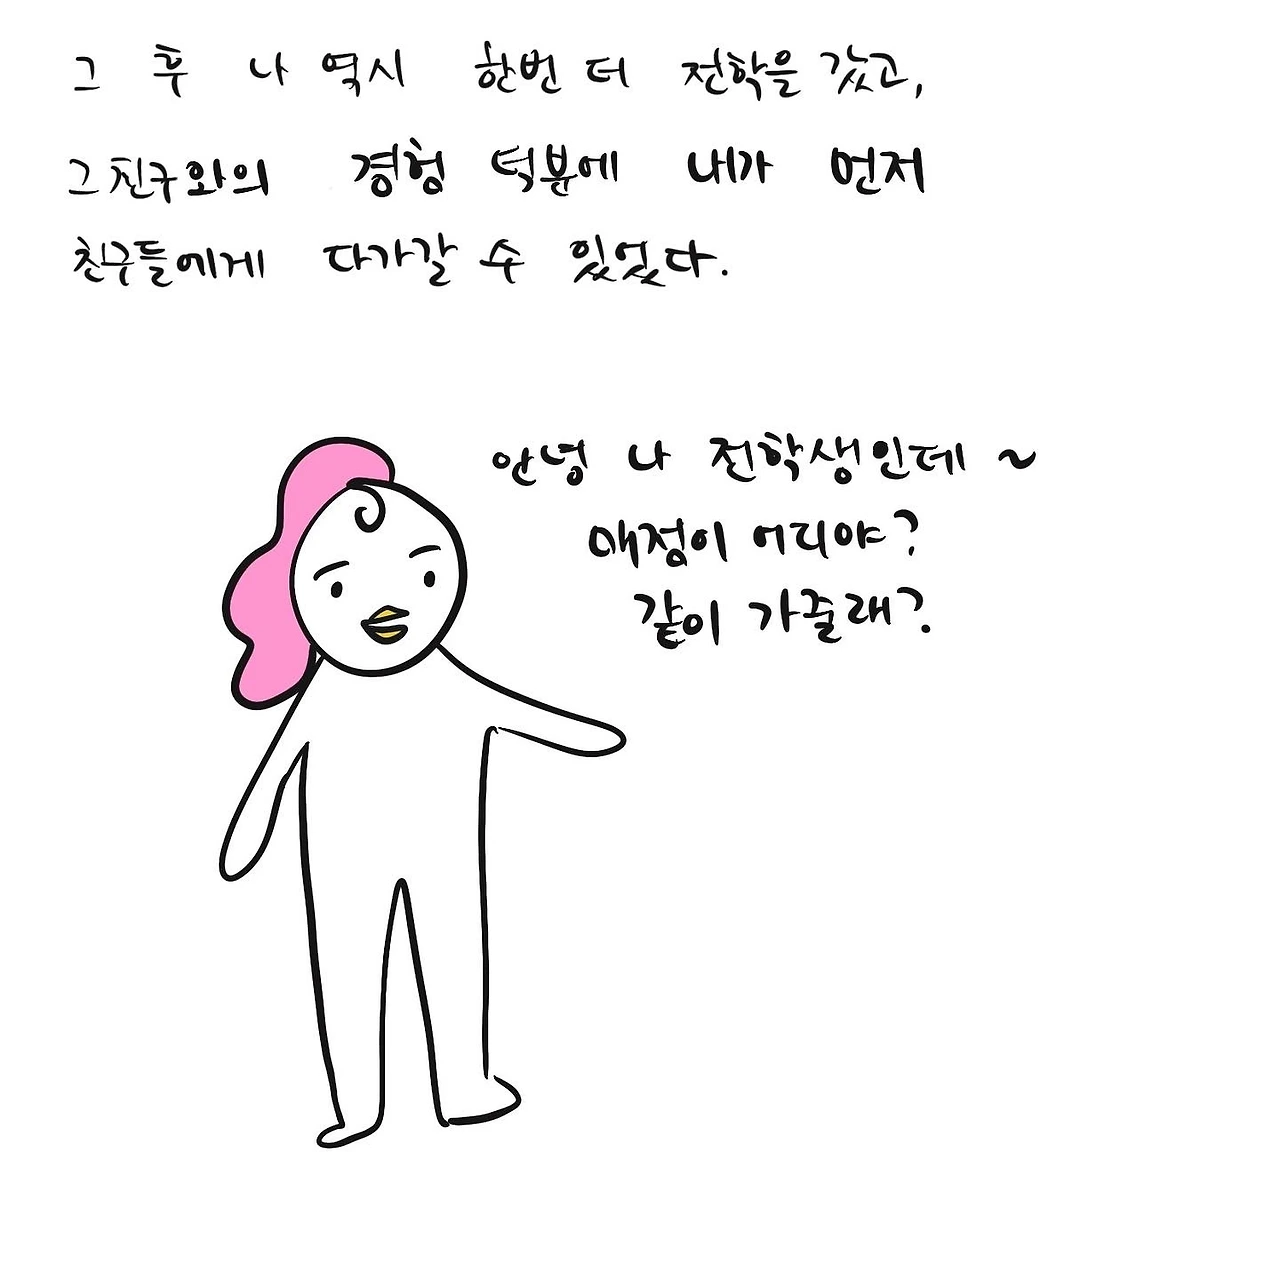 그 후 나 역시 한번 더 전학을 갔고,
그 친구와의 경험 덕분에 내가 먼저
친구들에게 다가갈 수 있었다.
안녕 나 전학생인데 ~
매점이 어디야?
같이 가줄래?